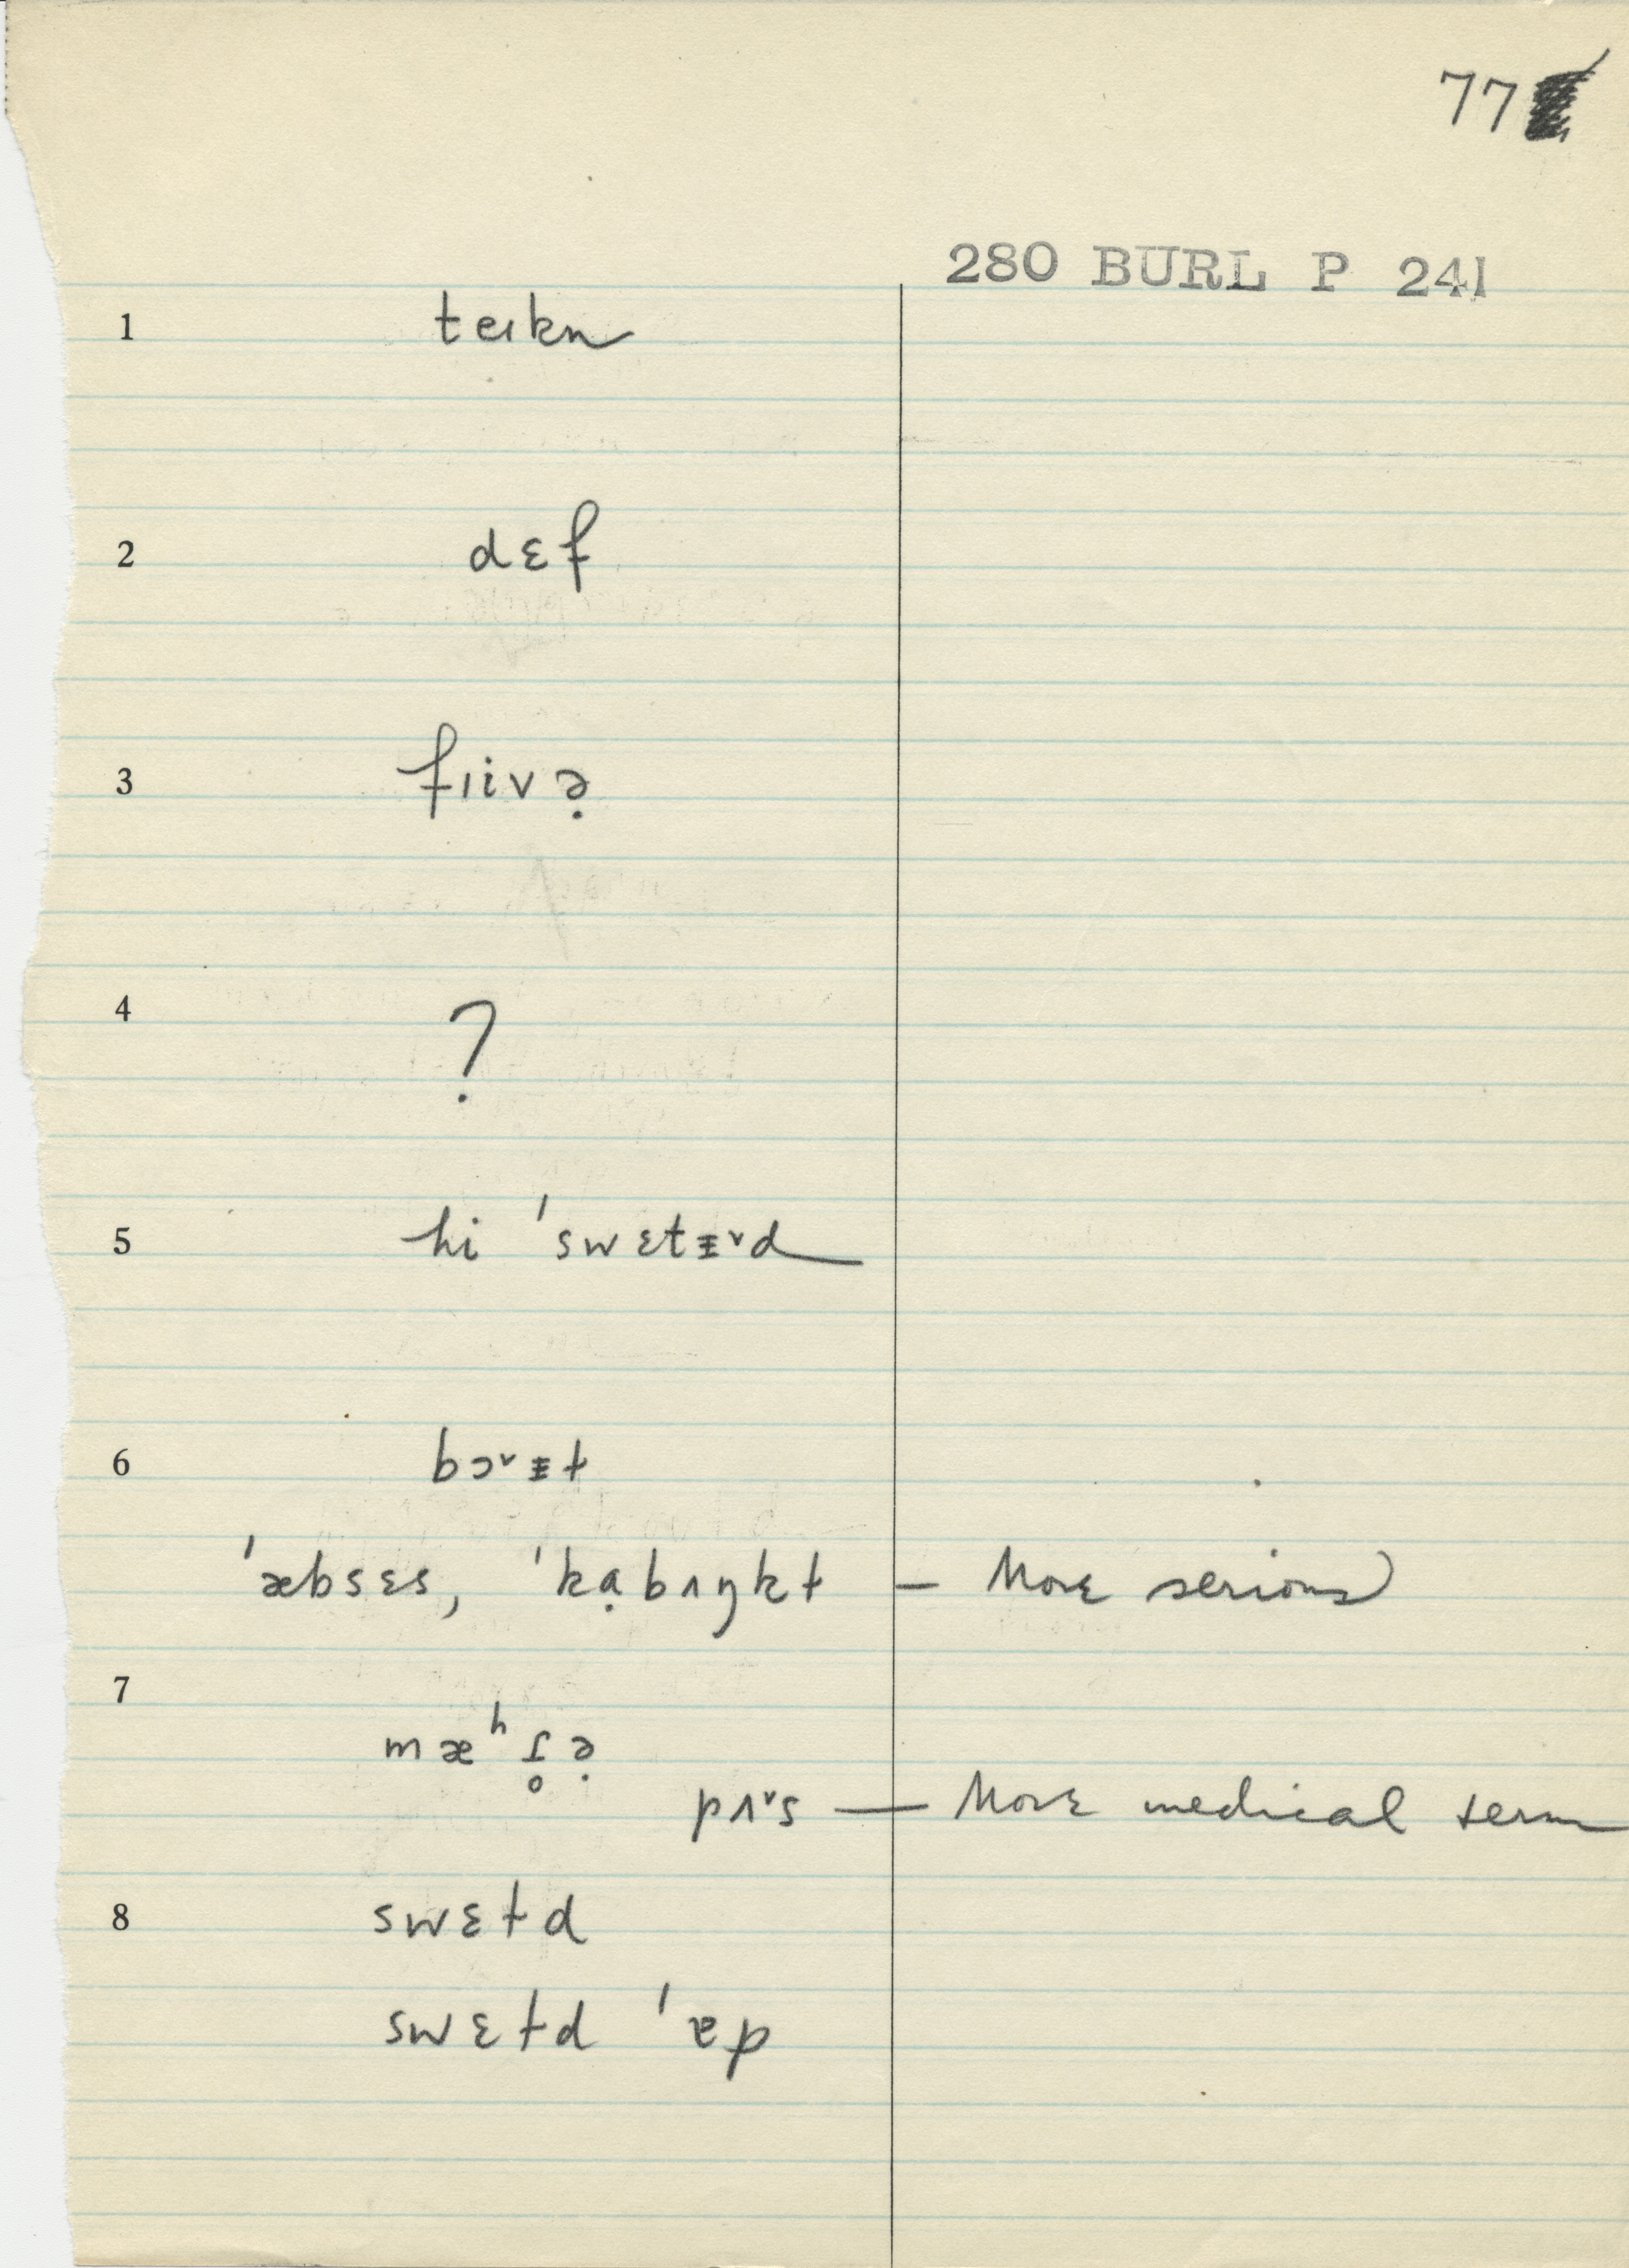 77
280 BURL P 241
1 teɪkn
2 dɛf
3 fɪivə̣
4 ?
5 hi ˈswɛtᵻ˅d
6 bɔ˅ᵻt
ˈæbsɛs, ˈkạbʌŋkt — More serious
7 mæʰɾ̥ə̣
pʌ˅s — More medical term
8 swɛtd
swɛtd ˈɐp